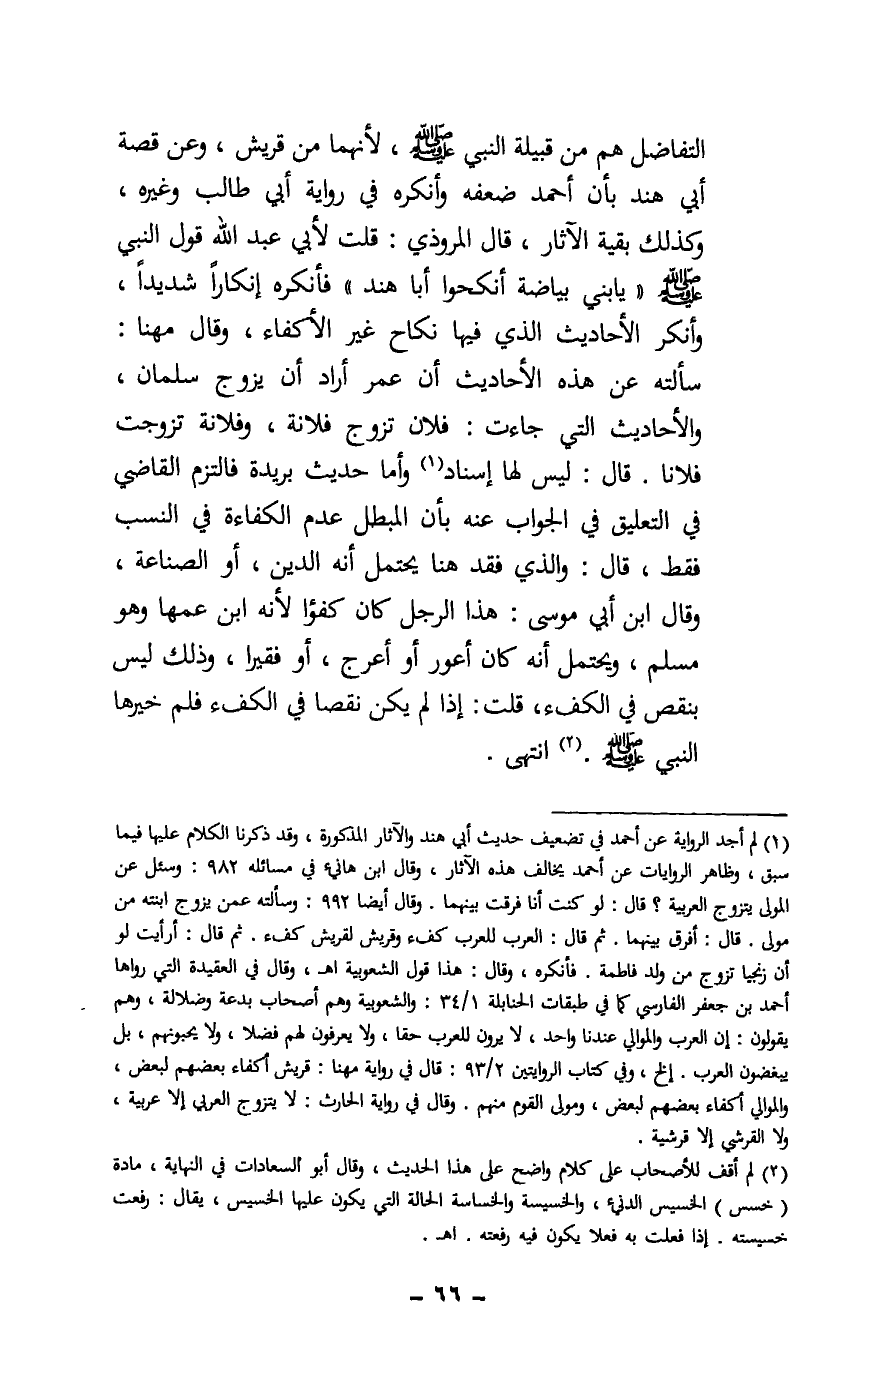 التفاضل هم من قبيلة النبي ﷺ ، لأنهما من قريش ، وعن قصة
أبي هند بأن أحمد ضعفه وأنكره في رواية أبي طالب وغيره ،
وكذلك بقية الآثار ، قال المروذي : قلت لأبي عبد الله قول النبي
ﷺ « يابني بياضة أنكحوا أبا هند » فأنكره إنكاراً شديداً ،
وأنكر الأحاديث الذي فيها نكاح غير الأكفاء ، وقال مهنا :
سألته عن هذه الأحاديث أن عمر أراد أن يزوج سلمان ،
والأحاديث التي جاءت : فلان تزوج فلانة ، وفلانة تزوجت
فلانا . قال : ليس لها إسناد(١) وأما حديث بريدة فالتزم القاضي
في التعليق في الجواب عنه بأن المبطل عدم الكفاءة في النسب
فقط ، قال : والذي فقد هنا يحتمل أنه الدين ، أو الصناعة ،
وقال ابن أبي موسى : هذا الرجل كان كفؤا لأنه ابن عمها وهو
مسلم ، ويحتمل أنه كان أعور أو أعرج ، أو فقيرا ، وذلك ليس
بنقص في الكفء، قلت: إذا لم يكن نقصا في الكفء فلم خيرها
النبي ﷺ .(٢) انتهى .
(١) لم أجد الرواية عن أحمد في تضعيف حديث أبي هند والآثار المذكورة ، وقد ذكرنا الكلام عليها فيما
سبق ، وظاهر الروايات عن أحمد يخالف هذه الآثار ، وقال ابن هانيء في مسائله ٩٨٢ : وسئل عن
المولى يتزوج العربية ؟ قال : لو كنت أنا فرقت بينهما . وقال أيضا ٩٩٢ : وسألته عمن يزوج ابنته من
مولى . قال : أفرق بينهما . ثم قال : العرب للعرب كفء وقريش لقريش كفء . ثم قال : أرأيت لو
أن زنجيا تزوج من ولد فاطمة . فأنكره ، وقال : هذا قول الشعوبية اهـ ، وقال في العقيدة التي رواها
أحمد بن جعفر الفارسي كما في طبقات الحنابلة ٣٤/١ : والشعوبية وهم أصحاب بدعة وضلالة ، وهم
يقولون : إن العرب والموالي عندنا واحد ، لا يرون للعرب حقا ، ولا يعرفون لهم فضلا ، ولا يحبونهم ، بل
يبغضون العرب . إلخ ، وفي كتاب الروايتين ٩٣/٢ : قال في رواية مهنا : قريش أكفاء بعضهم لبعض ،
والموالي أكفاء بعضهم لبعض ، ومولى القوم منهم . وقال في رواية الحارث : لا يتزوج العربي إلا عربية ،
ولا القرشي إلا قرشية .
(٢) لم أقف للأصحاب على كلام واضح على هذا الحديث ، وقال أبو السعادات في النهاية ، مادة
( خسس ) الخسيس الدنيء ، والخسيسة والخساسة الحالة التي يكون عليها الخسيس ، يقال : رفعت
خسيسته . إذا فعلت به فعلا يكون فيه رفعته . اهـ .
– ٦٦ –